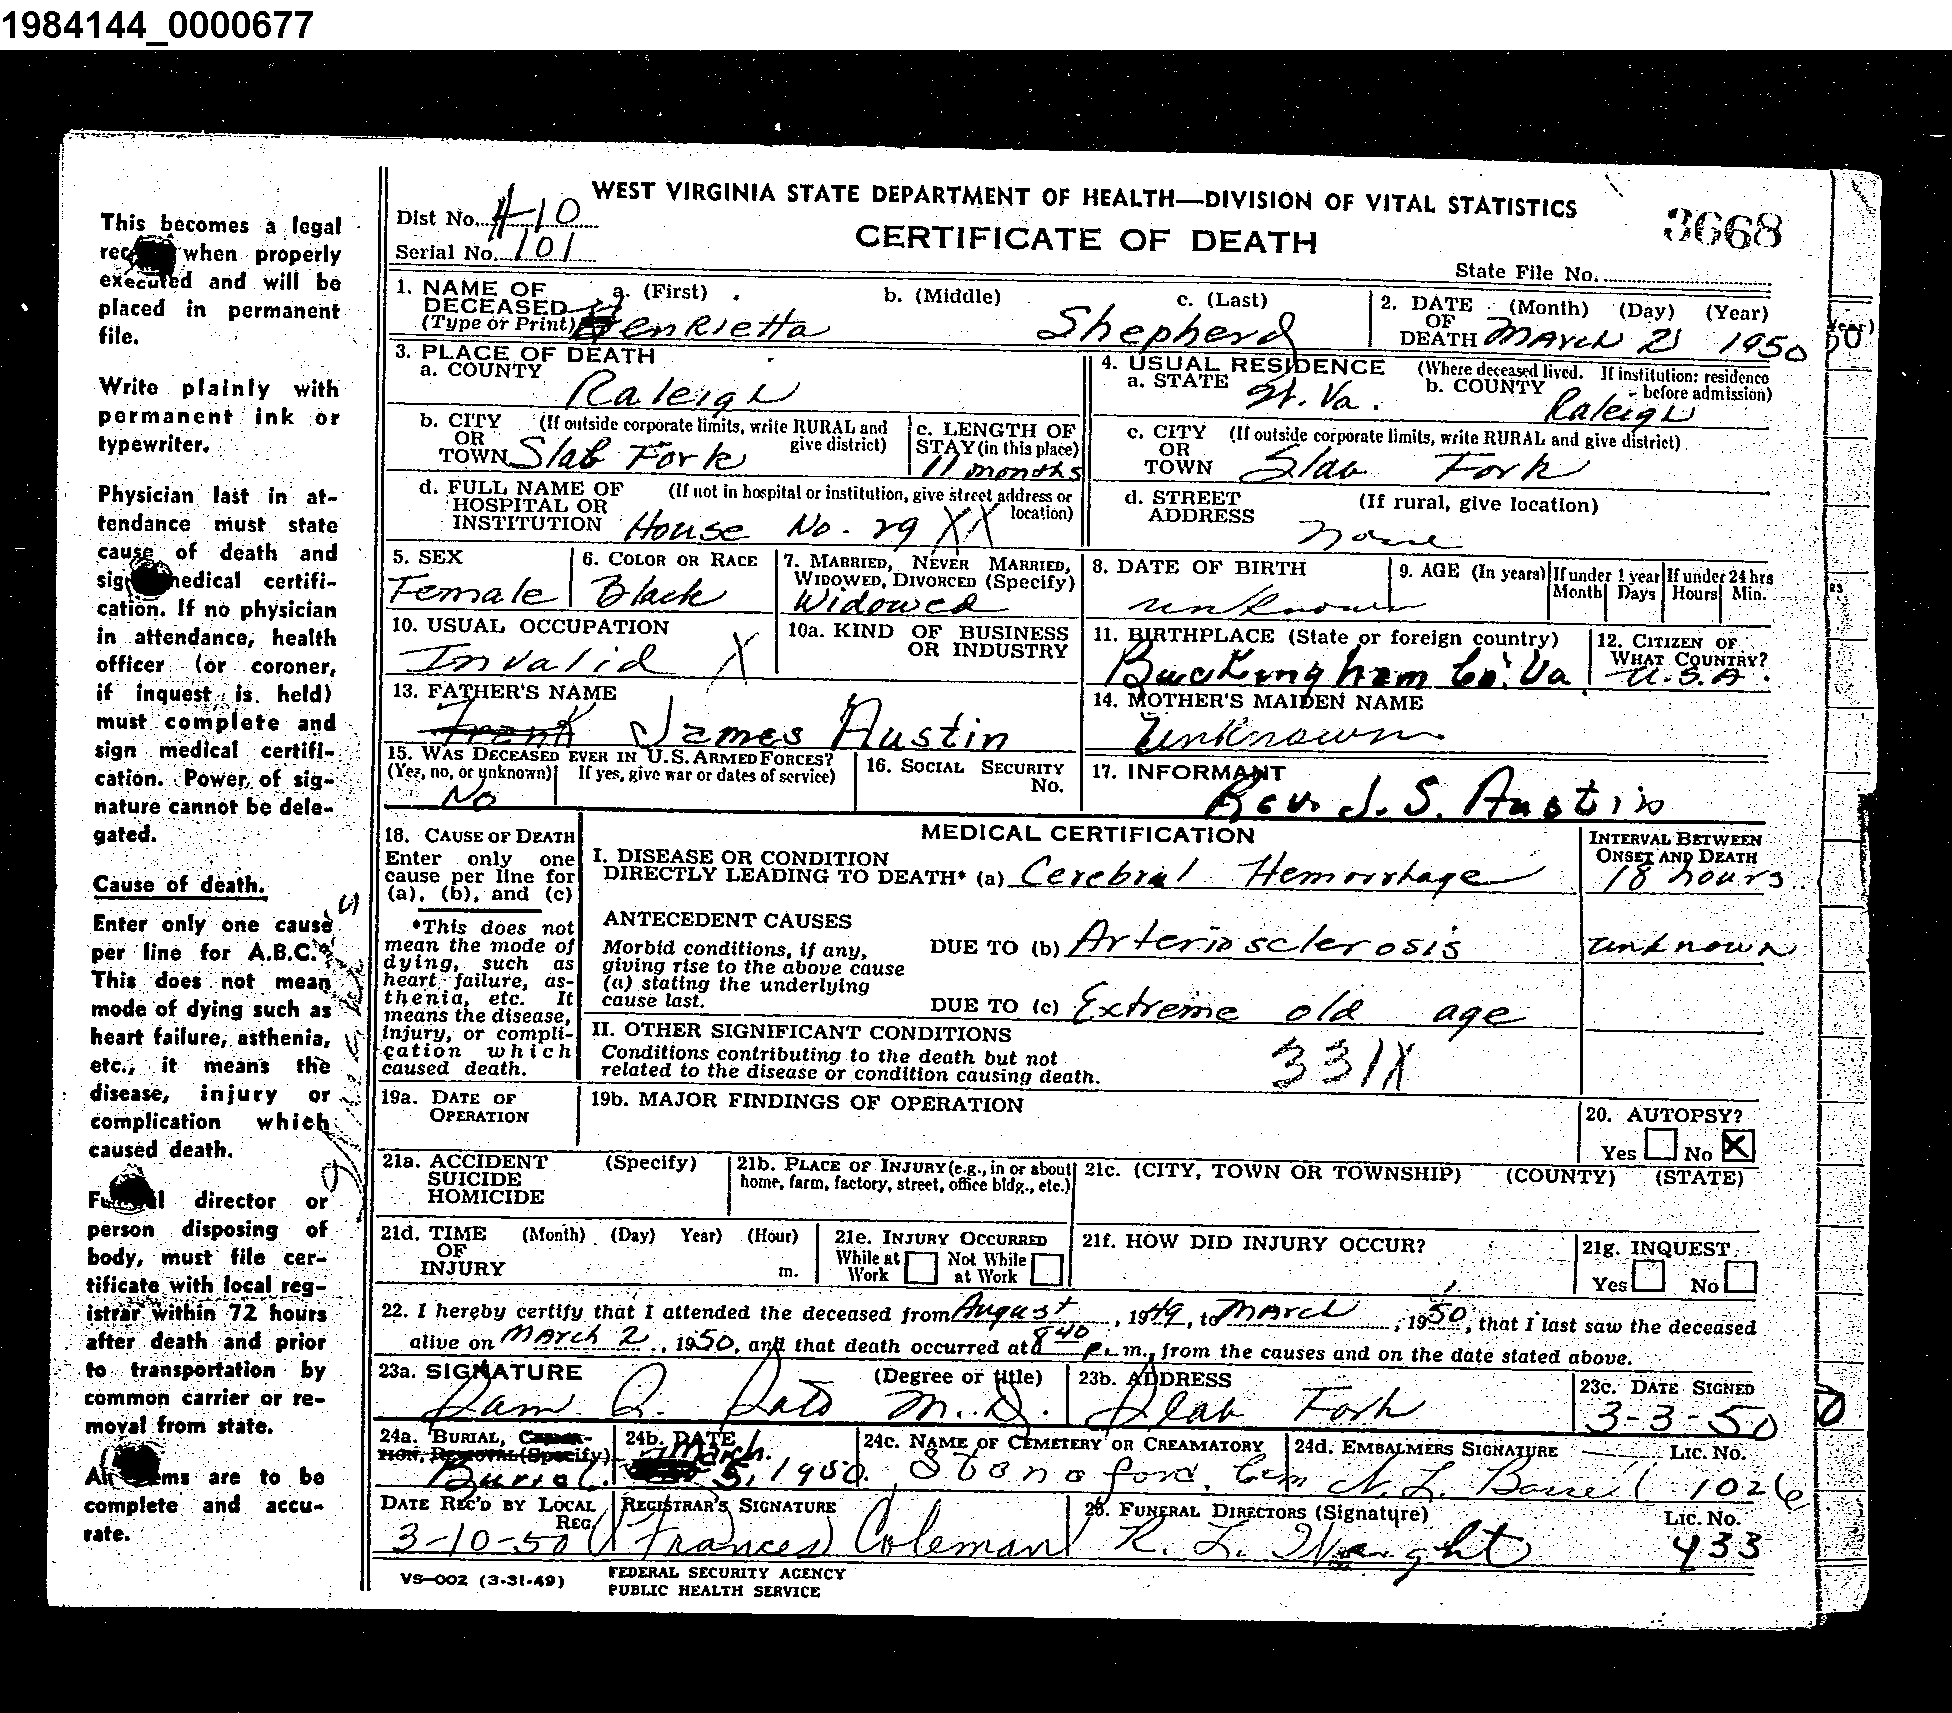 1984144_0000677
WEST VIRGINIA STATE DEPARTMENT OF HEALTH—DIVISION OF VITAL STATISTICS
Dist No. 410
Serial No. 101
CERTIFICATE OF DEATH
3668
State File No.
1. NAME OF DECEASED (Type or Print) a. (First) b. (Middle) c. (Last)
Henrietta Shepherd
2. DATE OF DEATH (Month) (Day) (Year)
March 2, 1950
3. PLACE OF DEATH
a. COUNTY
Raleigh
4. USUAL RESIDENCE (Where deceased lived. If institution: residence before admission)
a. STATE W. Va. b. COUNTY Raleigh
b. CITY OR TOWN (If outside corporate limits, write RURAL and give district)
Slab Fork
c. LENGTH OF STAY (in this place)
11 months
c. CITY OR TOWN (If outside corporate limits, write RURAL and give district)
Slab Fork
d. FULL NAME OF HOSPITAL OR INSTITUTION (If not in hospital or institution, give street address or location)
House No. 29 XX
d. STREET ADDRESS (If rural, give location)
none
5. SEX
Female
6. COLOR OR RACE
Black
7. MARRIED, NEVER MARRIED, WIDOWED, DIVORCED (Specify)
Widowed
8. DATE OF BIRTH
unknown
9. AGE (In years) If under 1 year Month Days If under 24 hrs Hours Min.
10. USUAL OCCUPATION
Invalid X
10a. KIND OF BUSINESS OR INDUSTRY
11. BIRTHPLACE (State or foreign country)
Buckingham Co. Va
12. CITIZEN OF WHAT COUNTRY?
U.S.A.
13. FATHER'S NAME
Frank James Austin
14. MOTHER'S MAIDEN NAME
Unknown
15. WAS DECEASED EVER IN U.S. ARMED FORCES?
(Yes, no, or unknown) If yes, give war or dates of service)
No
16. SOCIAL SECURITY No.
17. INFORMANT
Rev. J. S. Austin
18. CAUSE OF DEATH
Enter only one cause per line for (a), (b), and (c)
*This does not mean the mode of dying, such as heart failure, asthenia, etc. It means the disease, injury, or complication which caused death.
MEDICAL CERTIFICATION
INTERVAL BETWEEN ONSET AND DEATH
I. DISEASE OR CONDITION
DIRECTLY LEADING TO DEATH* (a) Cerebral Hemorrhage 18 hours
ANTECEDENT CAUSES
Morbid conditions, if any, giving rise to the above cause (a) stating the underlying cause last.
DUE TO (b) Arteriosclerosis unknown
DUE TO (c) Extreme old age
II. OTHER SIGNIFICANT CONDITIONS
Conditions contributing to the death but not related to the disease or condition causing death.
331X
19a. DATE OF OPERATION
19b. MAJOR FINDINGS OF OPERATION
20. AUTOPSY?
Yes No X
21a. ACCIDENT SUICIDE HOMICIDE (Specify)
21b. PLACE OF INJURY (e.g., in or about home, farm, factory, street, office bldg., etc.)
21c. (CITY, TOWN OR TOWNSHIP) (COUNTY) (STATE)
21d. TIME OF INJURY (Month) (Day) Year) (Hour) m.
21e. INJURY OCCURRED
While at Work Not While at Work
21f. HOW DID INJURY OCCUR?
21g. INQUEST
Yes No
22. I hereby certify that I attended the deceased from August, 1949, to March, 1950, that I last saw the deceased
alive on March 2, 1950, and that death occurred at 8 40 p. m., from the causes and on the date stated above.
23a. SIGNATURE (Degree or title)
Sam M.D.
23b. ADDRESS
Slab Fork
23c. DATE SIGNED
3-3-50
24a. BURIAL, CREMATION, REMOVAL (Specify)
Burial
24b. DATE
March 5, 1950
24c. NAME OF CEMETERY OR CREAMATORY
Stanaford Cem
24d. EMBALMERS SIGNATURE LIC. NO.
N. L. 1026
DATE REC'D BY LOCAL REG.
3-10-50
REGISTRAR'S SIGNATURE
Frances Coleman
25. FUNERAL DIRECTORS (Signature) LIC. NO.
R. L. Wright 433
VS-002 (3-31-49)
FEDERAL SECURITY AGENCY
PUBLIC HEALTH SERVICE
This becomes a legal
when properly
executed and will be
placed in permanent
file.
Write plainly with
permanent ink or
typewriter.
Physician last in at-
tendance must state
cause of death and
sign medical certifi-
cation. If no physician
in attendance, health
officer (or coroner,
if inquest is held)
must complete and
sign medical certifi-
cation. Power of sig-
nature cannot be dele-
gated.
Cause of death.
Enter only one cause
per line for A.B.C.
This does not mean
mode of dying such as
heart failure, asthenia,
etc., it means the
disease, injury or
complication which
caused death.
Funeral director or
person disposing of
body, must file cer-
tificate with local reg-
istrar within 72 hours
after death and prior
to transportation by
common carrier or re-
moval from state.
All items are to be
complete and accu-
rate.